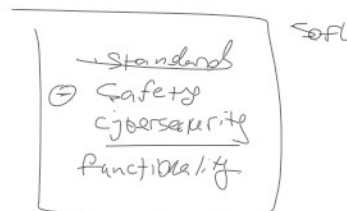 standard
Safety
cybersecurity
functionality